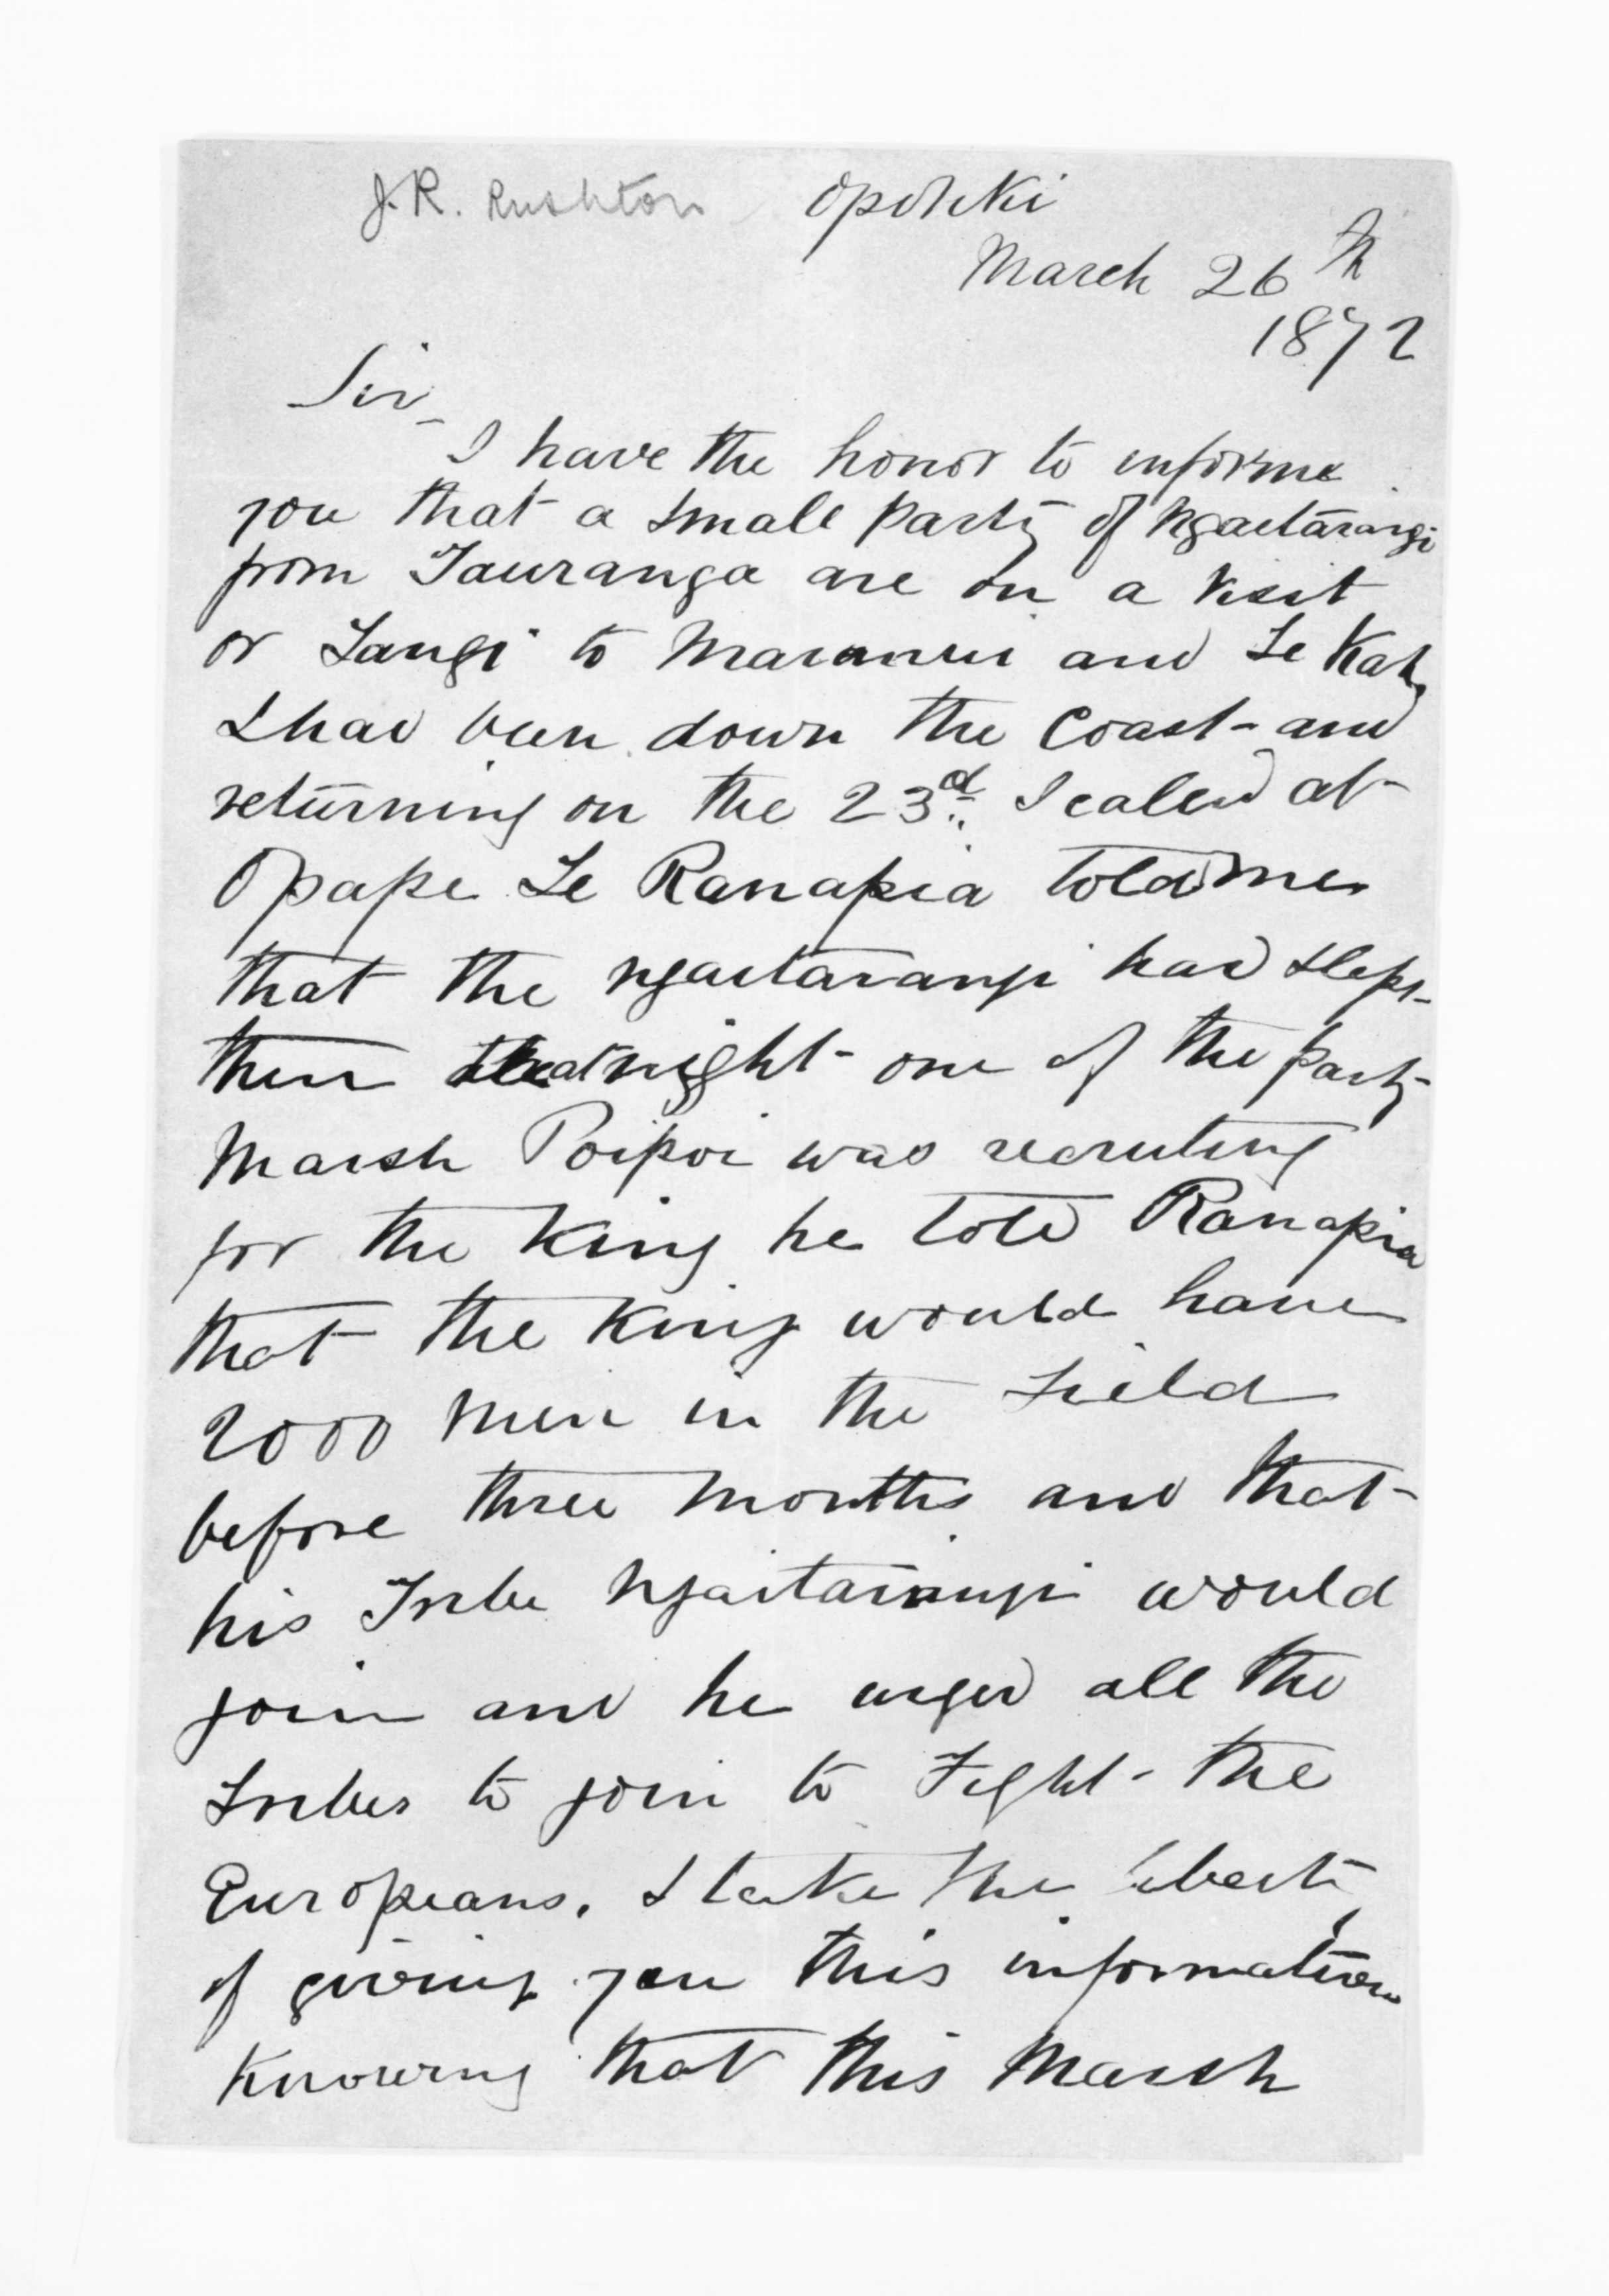 J.R. Rushton Opotiki
March 26th
1872
Sir
I have the honor to inform
you that a small party of Ngaetarangi
from Tauranga are on a visit
or Tangi to Maraenui and Te Kaha
I had been down the Coast and
returning on the 23rd I called at
Opape Te Ranapia told me
that the Ngaitarangi had slept
there that night one of the party
Marsh Poipoi was recruting
for the King he told Ranapia
that the King would have
2000 men in the Field
before three months and that
his Tribe Ngaitarangi would
join and he urged all the
Tribes to join to Fight the
Europeans. I take the liberty
of giving you this information
Knowing that this Marsh